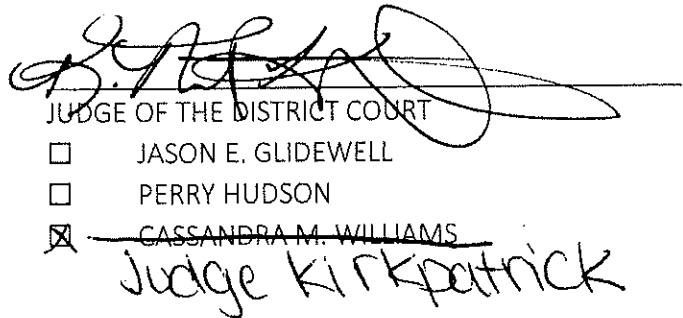 JUDGE OF THE DISTRICT COURT
☐ JASON E. GLIDEWELL
☐ PERRY HUDSON
☒ CASSANDRA M. WILLIAMS
Judge Kirkpatrick